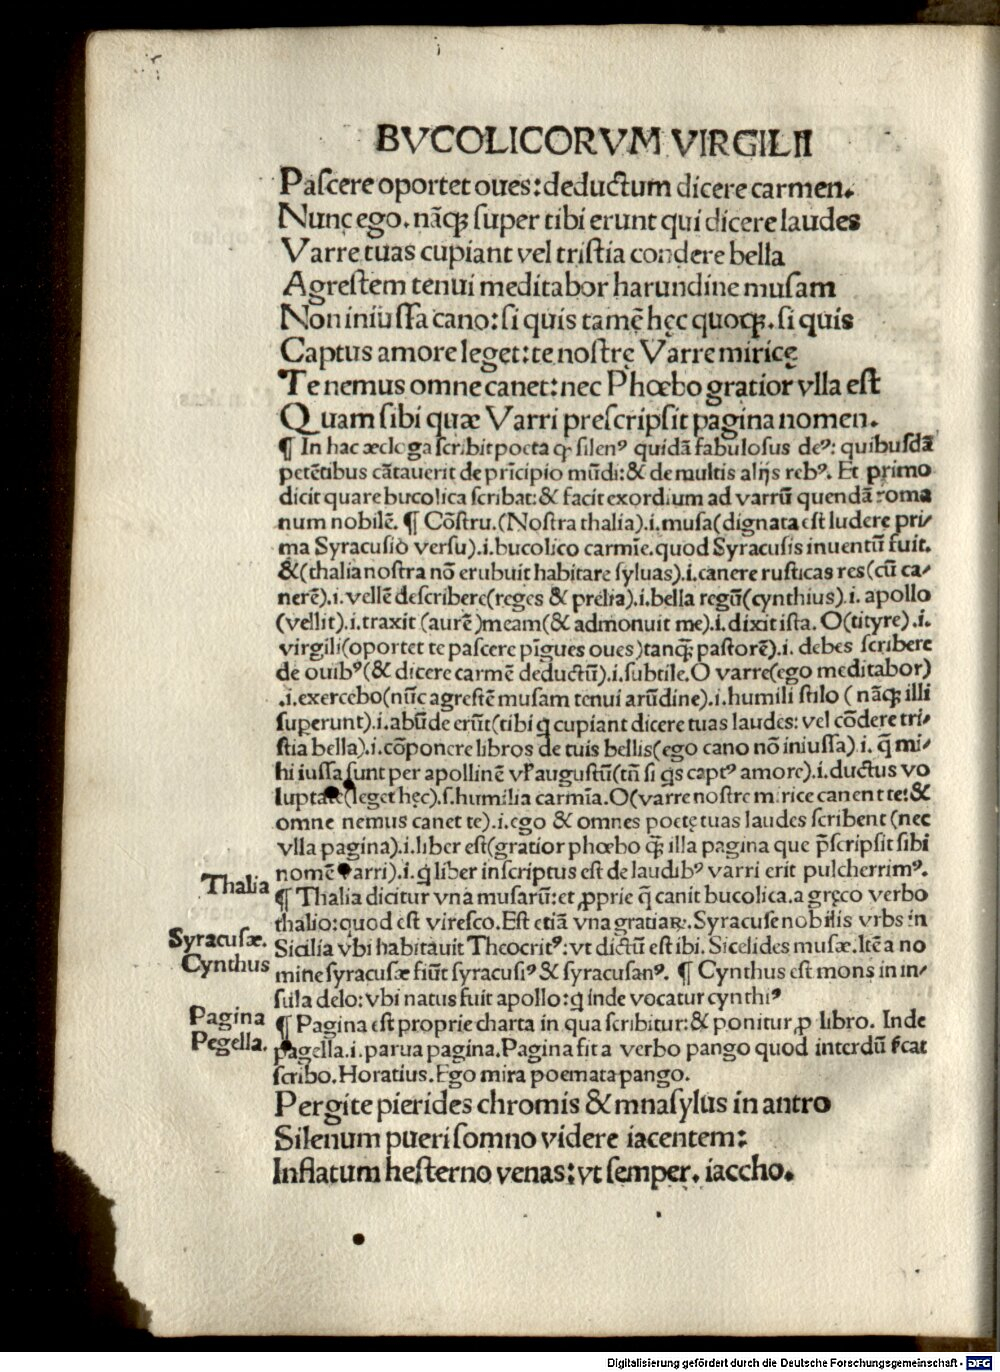 BVCOLICORVM VIRGILII
Paſcere oportet oues: deductum dicere carmen.
Nunc ego. nāqꝫ ſuper tibi erunt qui dicere laudes
Varre tuas cupiant vel triſtia condere bella
Agreſtem tenui meditabor harundine muſam
Non iniuſſa cano: ſi quis tamē hęc quoqꝫ. ſi quis
Captus amore leget: te noſtrę Varre miricę
Te nemus omne canet: nec Phœbo gratior vlla eſt
Quam ſibi quæ Varri preſcripſit pagina nomen.
¶ In hac æcloga ſcribit poeta ꝙ ſilenꝰ quidā fabuloſus deꝰ: quibuſdā
petētibus cātauerit de prīcipio mūdi: & de multis alijs rebꝰ. Et primo
dicit quare bucolica ſcribat: & facit exordium ad varrū quendā roma
num nobilē. ¶ Cōſtru. (Noſtra thalia).i. muſa (dignata eſt ludere pri/
ma Syracuſio verſu).i. bucolico carmīe. quod Syracuſis inuentū fuit.
& (thalia noſtra nō erubuit habitare ſyluas).i. canere ruſticas res (cū ca/
nerē).i. vellē deſcribere (reges & prelia).i. bella regū (cynthius).i. apollo
(vellit).i. traxit (aurē) meam (& admonuit me).i. dixit iſta. O (tityre).i.
virgili (oportet te paſcere pīgues oues) tanqꝫ paſtorē).i. debes ſcribere
de ouibꝰ (& dicere carmē deductū).i. ſubtile. O varre (ego meditabor)
.i. exercebo (nūc agreſtē muſam tenui arūdine).i. humili ſtilo (nāqꝫ illi
ſuperunt).i. abūde erūt (tibi q̄ cupiant dicere tuas laudes: vel cōdere tri/
ſtia bella).i. cōponere libros de tuis bellis (ego cano nō iniuſſa).i. q̄ mi/
hi iuſſa ſunt per apollinē vꝉ auguſtū (tn̄ ſi q̄s captꝰ amore).i. ductus vo
luptate (leget hęc).ſ. humilia carmīa. O (varre noſtre mirice canent te: &
omne nemus canet te).i. ego & omnes poetę tuas laudes ſcribent (nec
vlla pagina).i. liber eſt (gratior phœbo qꝫ illa pagina que p̄ſcripſit ſibi
nomē varri).i. q̄ liber inſcriptus eſt de laudibꝰ varri erit pulcherrimꝰ.
Thalia
¶ Thalia dicitur vna muſarū: et ꝓprie q̄ canit bucolica. a gręco verbo
thalio: quod eſt vireſco. Eſt etiā vna gratiaꝝ. Syracuſe nobilis vrbs in
Syracuſæ.
Sicilia vbi habitauit Theocritꝰ: vt dictū eſt ibi. Sicelides muſæ. Itē a no
Cynthus
mine ſyracuſæ fiūt ſyracuſiꝰ & ſyracuſanꝰ. ¶ Cynthus eſt mons in in/
ſula delo: vbi natus fuit apollo: q̄ inde vocatur cynthiꝰ
Pagina
¶ Pagina eſt proprie charta in qua ſcribitur: & ponitur ꝓ libro. Inde
Pegella.
pagella.i. parua pagina. Pagina fit a verbo pango quod interdū ſ̄cat
ſcribo. Horatius. Ego mira poemata pango.
Pergite pierides chromis & mnaſylus in antro
Silenum pueri ſomno videre iacentem:
Inflatum heſterno venas: vt ſemper. iaccho.
Digitalisierung gefördert durch die Deutsche Forschungsgemeinschaft - DFG